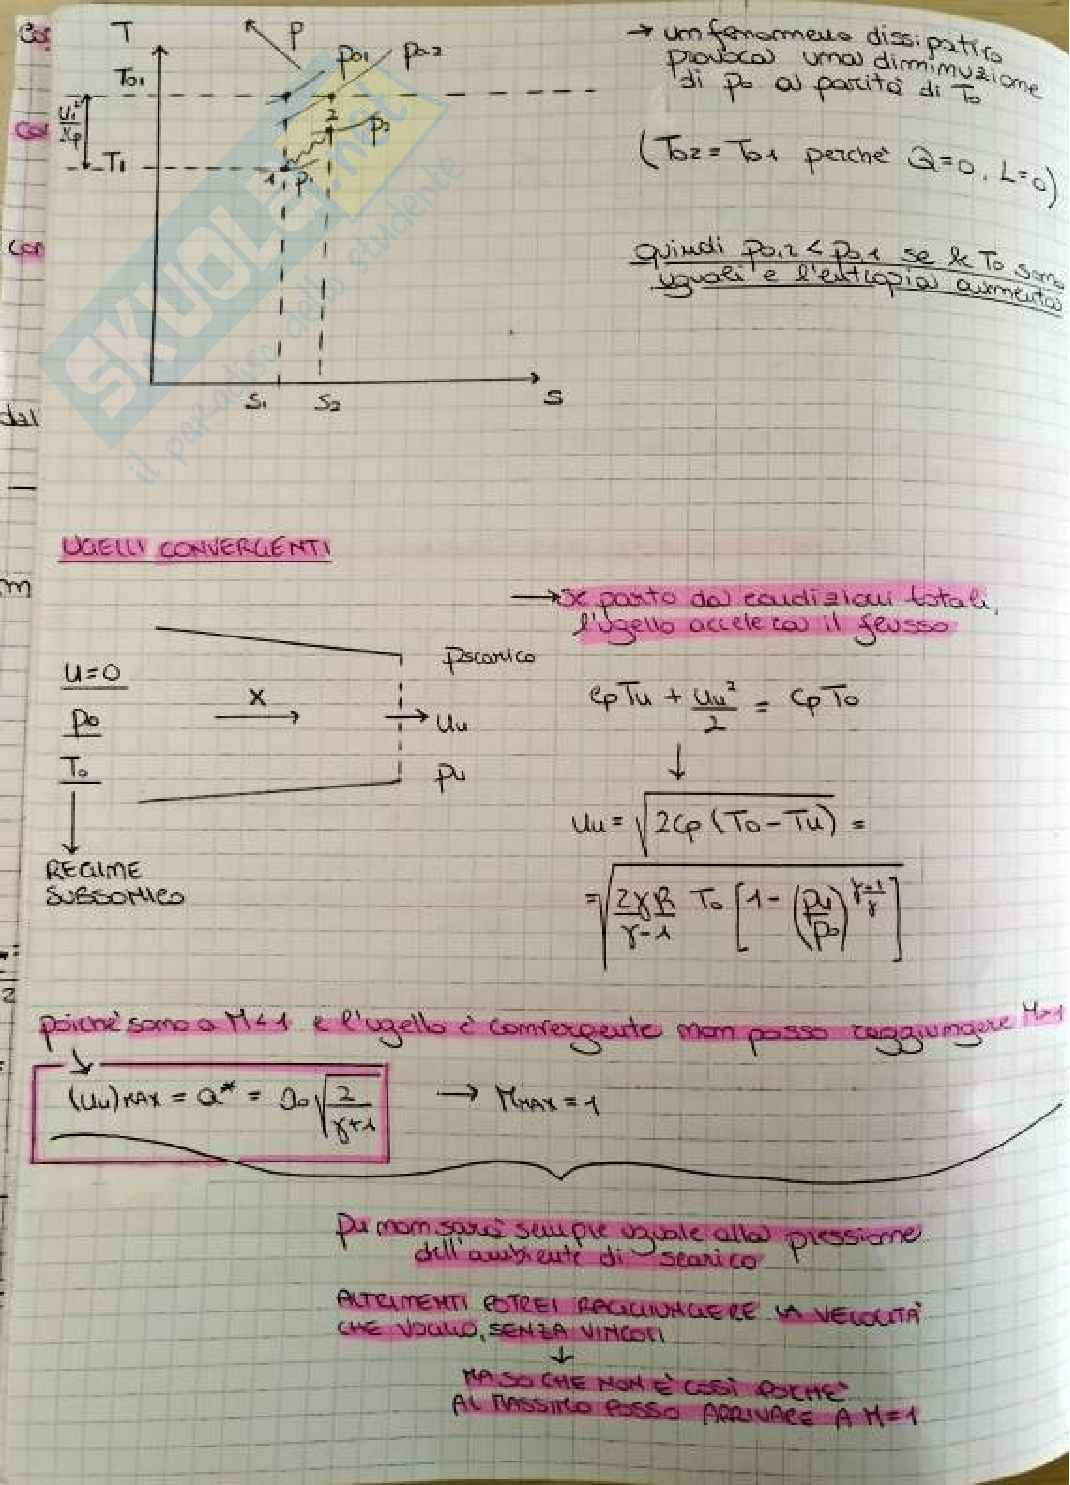 T
p
p01
p0,2
T01
u1²/2cp
2
p2
T1
1
p1
S1
S2
S
→ un fenomeno dissipativo
provoca una diminuzione
di p0 a parità di T0
(T02 = T01 perché Q=0, L=0)
quindi p0,2 < p0,1 se le T0 sono
uguali e l'entropia aumenta
Cos
Cos
Con
dal
m
2
SKUOLA.net
il paradiso dello studente
UGELLI CONVERGENTI
→ se parto da condizioni totali,
l'ugello accelera il flusso
u=0
p0
T0
↓
REGIME
SUBSONICO
x
→
pscarico
→ uu
pu
cpTu + uu²/2 = cpT0
↓
uu = √(2cp (T0 - Tu)) =
= √(2γR/(γ-1) T0 [1 - (pu/p0)^((γ-1)/γ)])
poiché sono a M<1 e l'ugello è convergente non posso raggiungere M>1
(uu)MAX = a* = a0 √(2/(γ+1)) → MMAX = 1
pu non sarà sempre uguale alla pressione
dell'ambiente di scarico
ALTRIMENTI POTREI RAGGIUNGERE LA VELOCITÀ
CHE VOGLIO, SENZA VINCOLI
↓
MA SO CHE NON È COSÌ POICHÉ
AL MASSIMO POSSO ARRIVARE A M=1